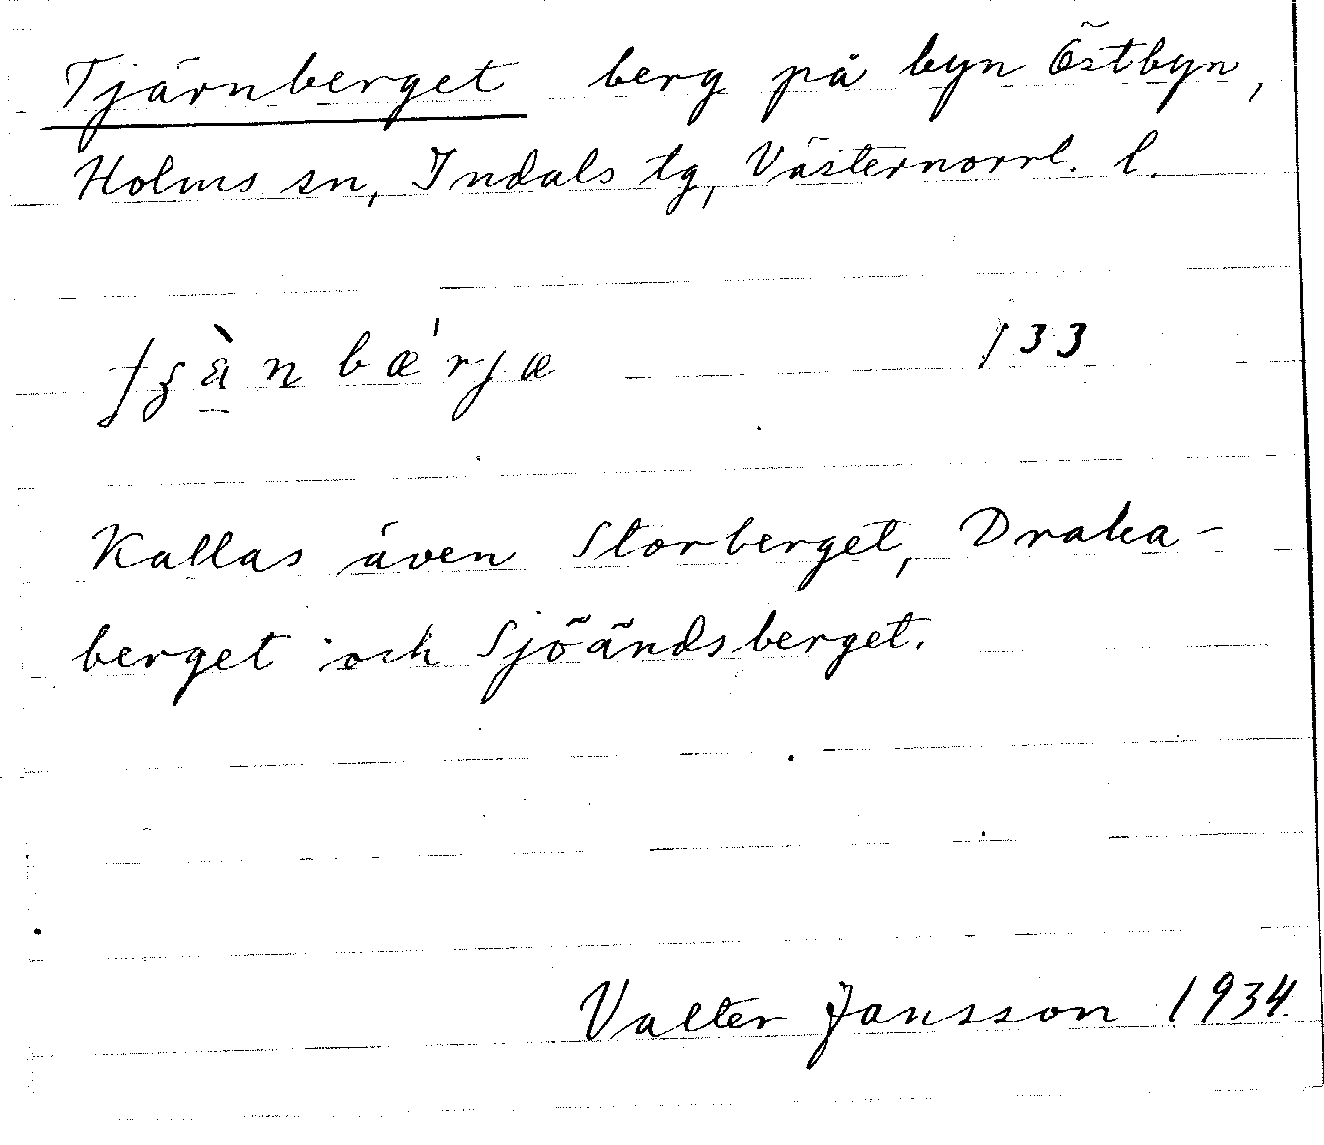 Tjärnberget berg på byn Östbyn,
Holms sn, Indals tg, Västernorrl. l.
133
Kallas även Storberget, Draka-
berget och Sjöändsberget.
Valter Jansson 1934